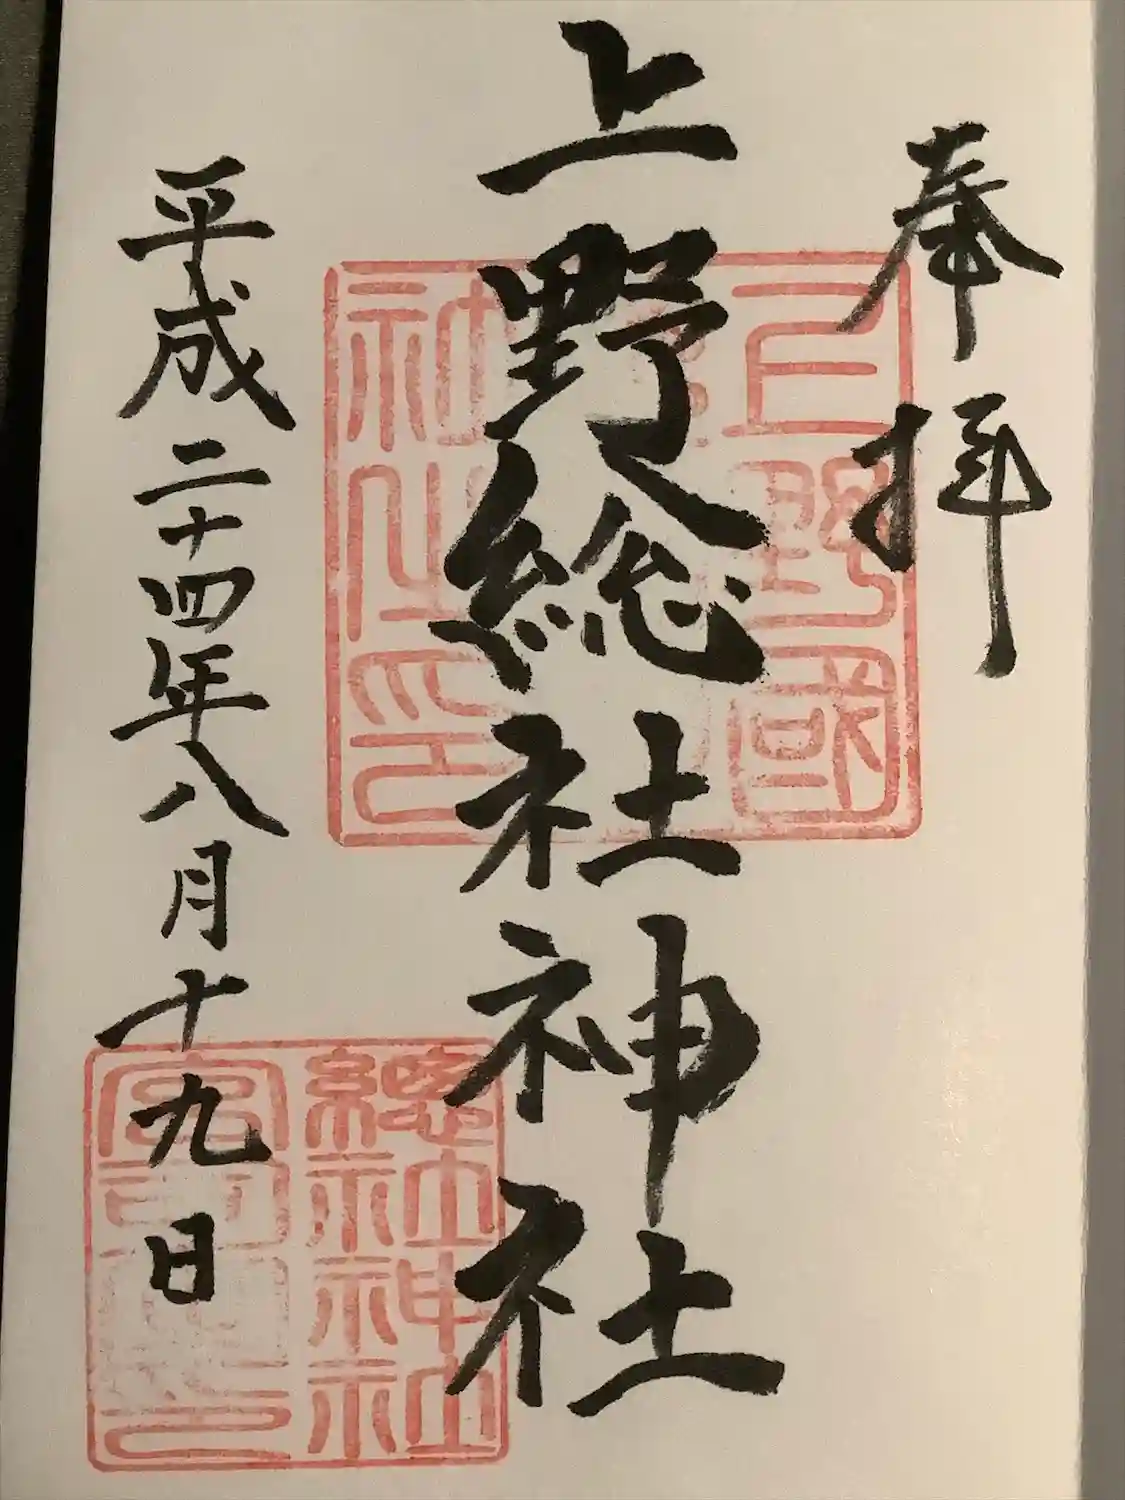 奉拝
上野総社神社
平成二十四年八月十九日
上野國
社之印
總社神社
宮司之印